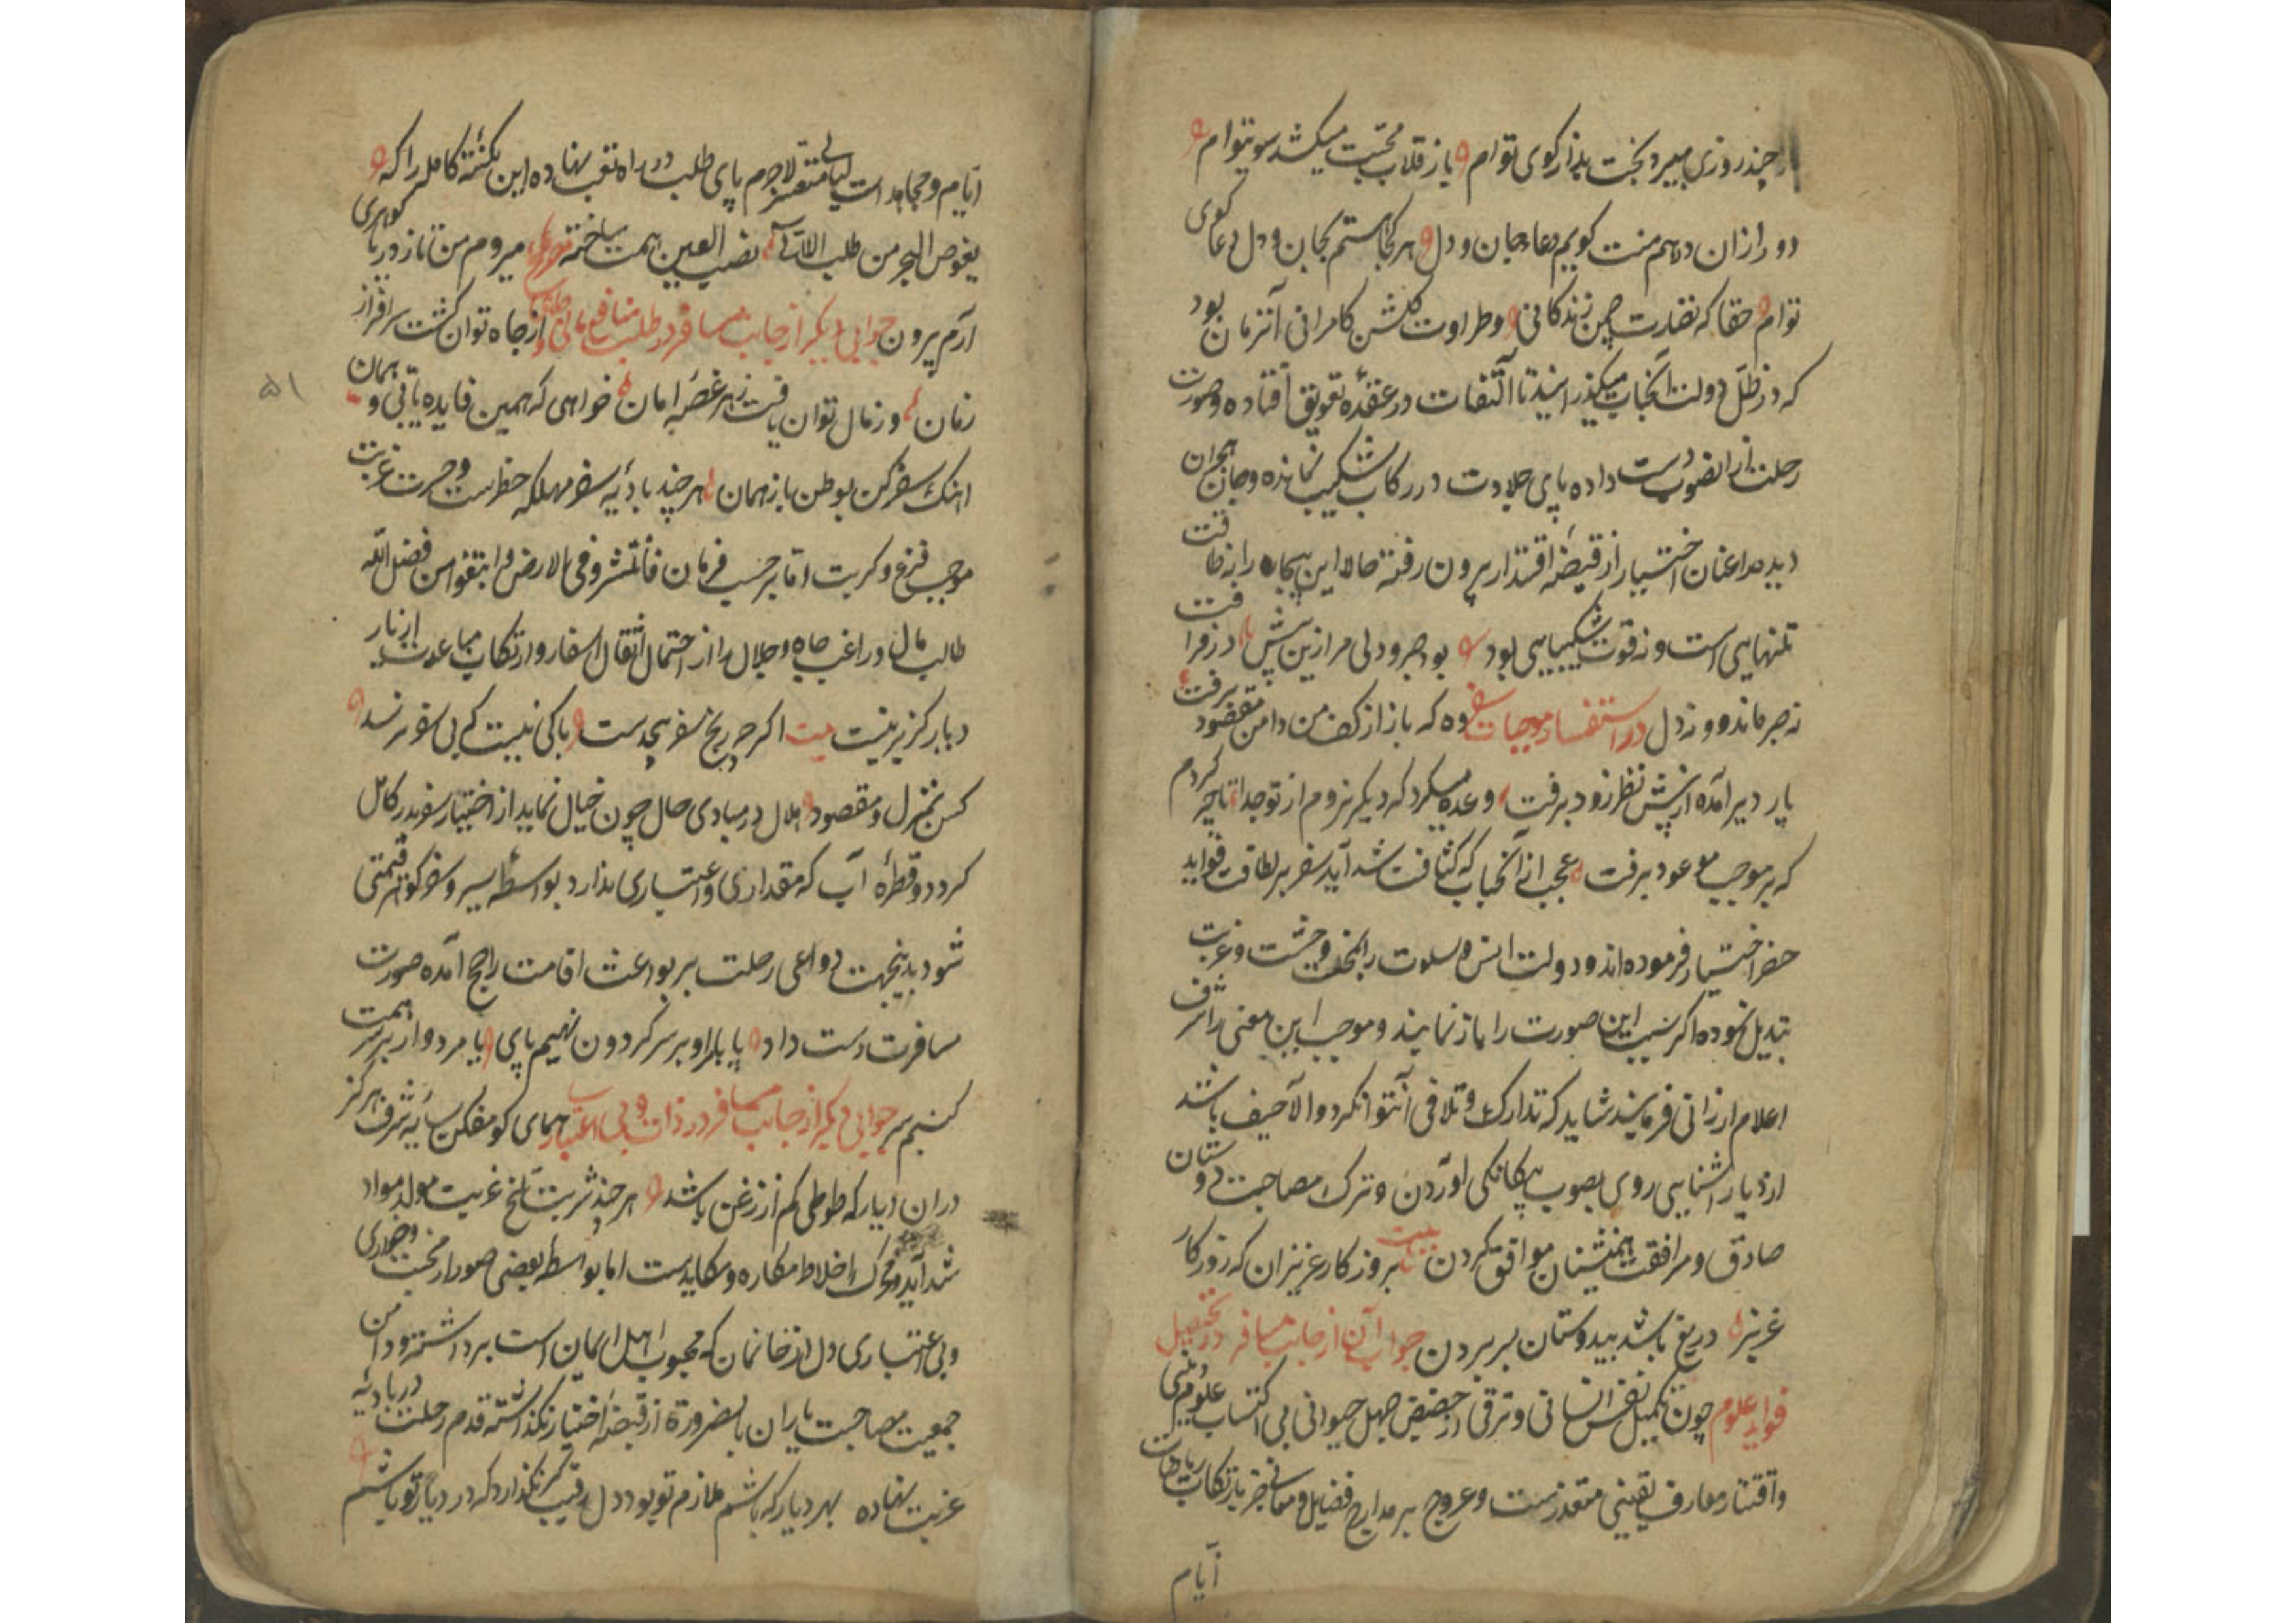 هر چند روزی میبرد بخت بد از کوی توام باز قلاب محبت میکشد سوی توام
دور ازان در هم منت کویم دعا جان و دل هر کجا هستم بجان و دل دعا کوی
توام حقا که نضارت چمن زندکانی و طراوت کلشن کامرانی آنزمان بود
که در ظل دولت آنجناب میکذرانید تا التفات در عقده تعویق افتاده و صورت
رحلت از انصوب دست داده پای جلادت در رکاب شکیب نمانده و جان هجران
دیده را عنان اختیار از قبضه اقتدار بیرون رفته حالا این بیچاره را نه طاقت
تنهایی است و نه قوت شکیبایی بود بود صبر و دلی مرا ازین پیش در فراقت
نه صبر ماند و نه دل در استفسار موجبات سفر وه که باز از کف من دامن مقصود برفت
یار دیر آمده از پیش نظر زود برفت وعده میکرد که دیکر نروم از تو جدا تا چه کردم
که بر موجب موعود برفت عجب از آنجناب که کثافت شداید سفر بر لطافت فواید
حضر اختیار فرموده اند و دولت انس و سلوت را بمحن وحشت و غربت
تبدیل نموده اکر سبب این صورت را باز نمایند و موجب این معنی را شرف
اعلام ارزانی فرمایند شاید که تدارک و تلافی آنتوان کرد والا حیف باشد
از دیار اشنایی روی بصوب بیکانکی اوردن و ترک مصاحبت دوستان
صادق و مرافقت همنشینان موافق کردن بیت بروزکار عزیزان که روزکار
عزیز دریغ باشد بیدوستان بسر بردن جواب آن از جانب مسافر در تحصیل
فواید علوم چون تکمیل نفس انسانی و ترقی از حضیض جهل حیوانی بی اکتساب علوم دینی
و اقتنار معارف یقینی متعذرست و عروج بر مدارج فضایل و معانی جز بارتکاب ریاضات
ایام
ایام و مجاهدات لیالی متعسر لاجرم پای طلب در راه تعب نهاده این نکته کامل را که
یغوص البحر من طلب اللآلی نصب العین همت ساخته مصرع میروم من تا ز دریا کوهری
آرم برون جوابی دیکر از جانب مسافر در طلب منافع مالی از جاه توان کشت سرافراز
زمان وز مال توان یافت زهر غصه امان خواهی که همین فایده یابی و همان
اینک سفر کن بوطن باز ممان هر چند بادیه سفر مهلکه خطرست و حسرت غربت
موجب فزع و کربت اما بر حسب فرمان فانتشروا فی الارض و ابتغوا من فضل الله
طالب مال و راغب جاه و جلال را از احتمال اثقال اسفار و ارتکاب مباعدت از یار
و دیار کزیر نیست بیت اکر چه رنج سفر بیحدست باکی نیست که بی سفر نرسد
کس بمنزل و مقصود هلال در مبادی حال چون خیال نماید از اختیار سفر بدر کامل
کردد و قطره آب که مقداری و اعتباری ندارد بواسطه سیر و سفر کوهر قیمتی
شود بدینجهت دواعی رحلت بر بواعث اقامت راجح آمده صورت
مسافرت دست داد یا بمراد بر سر کردون نهیم پای یا مردوار بر سر همت
کنیم سر جوابی دیکر از جانب مسافر در ذلت و بی اعتباری همای کو مفکن سایه شرف هرکز
دران دیار که طوطی کم از زغن باشد هر چند شربت تلخ غربت مولد مواد
شداید و محرک اخلاط مکاره و مکایدست اما بواسطه بعضی صور از محنت و خواری
و بی اعتباری دل از خانمان که محبوب اهل ایمان است برداشته و دامن
جمعیت مصاحبت یاران بالضرورة از قبضه اختیار بکذاشته قدم رحلت در بادیه
غربت نهاده بهر دیار که باشم ملازم تو بود دل رقیب کر نکذارد که در دیار تو باشم
۵۱